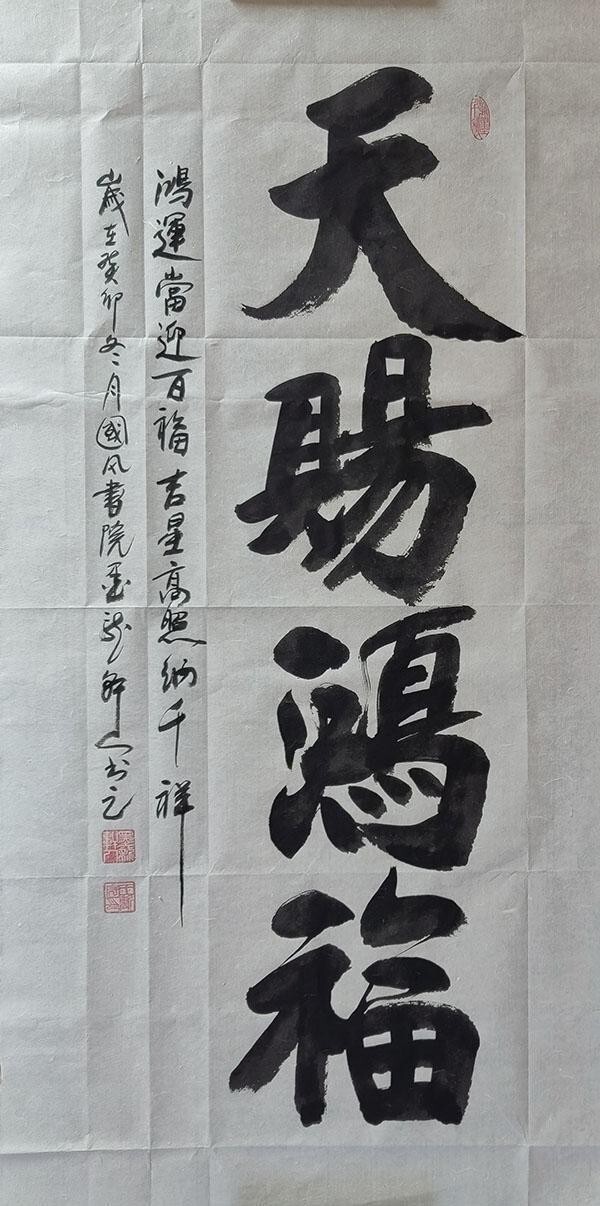 天賜鴻福
鴻運當迎百福吉星高照納千祥
歲在癸卯冬月國風書院墨龍軒人书之